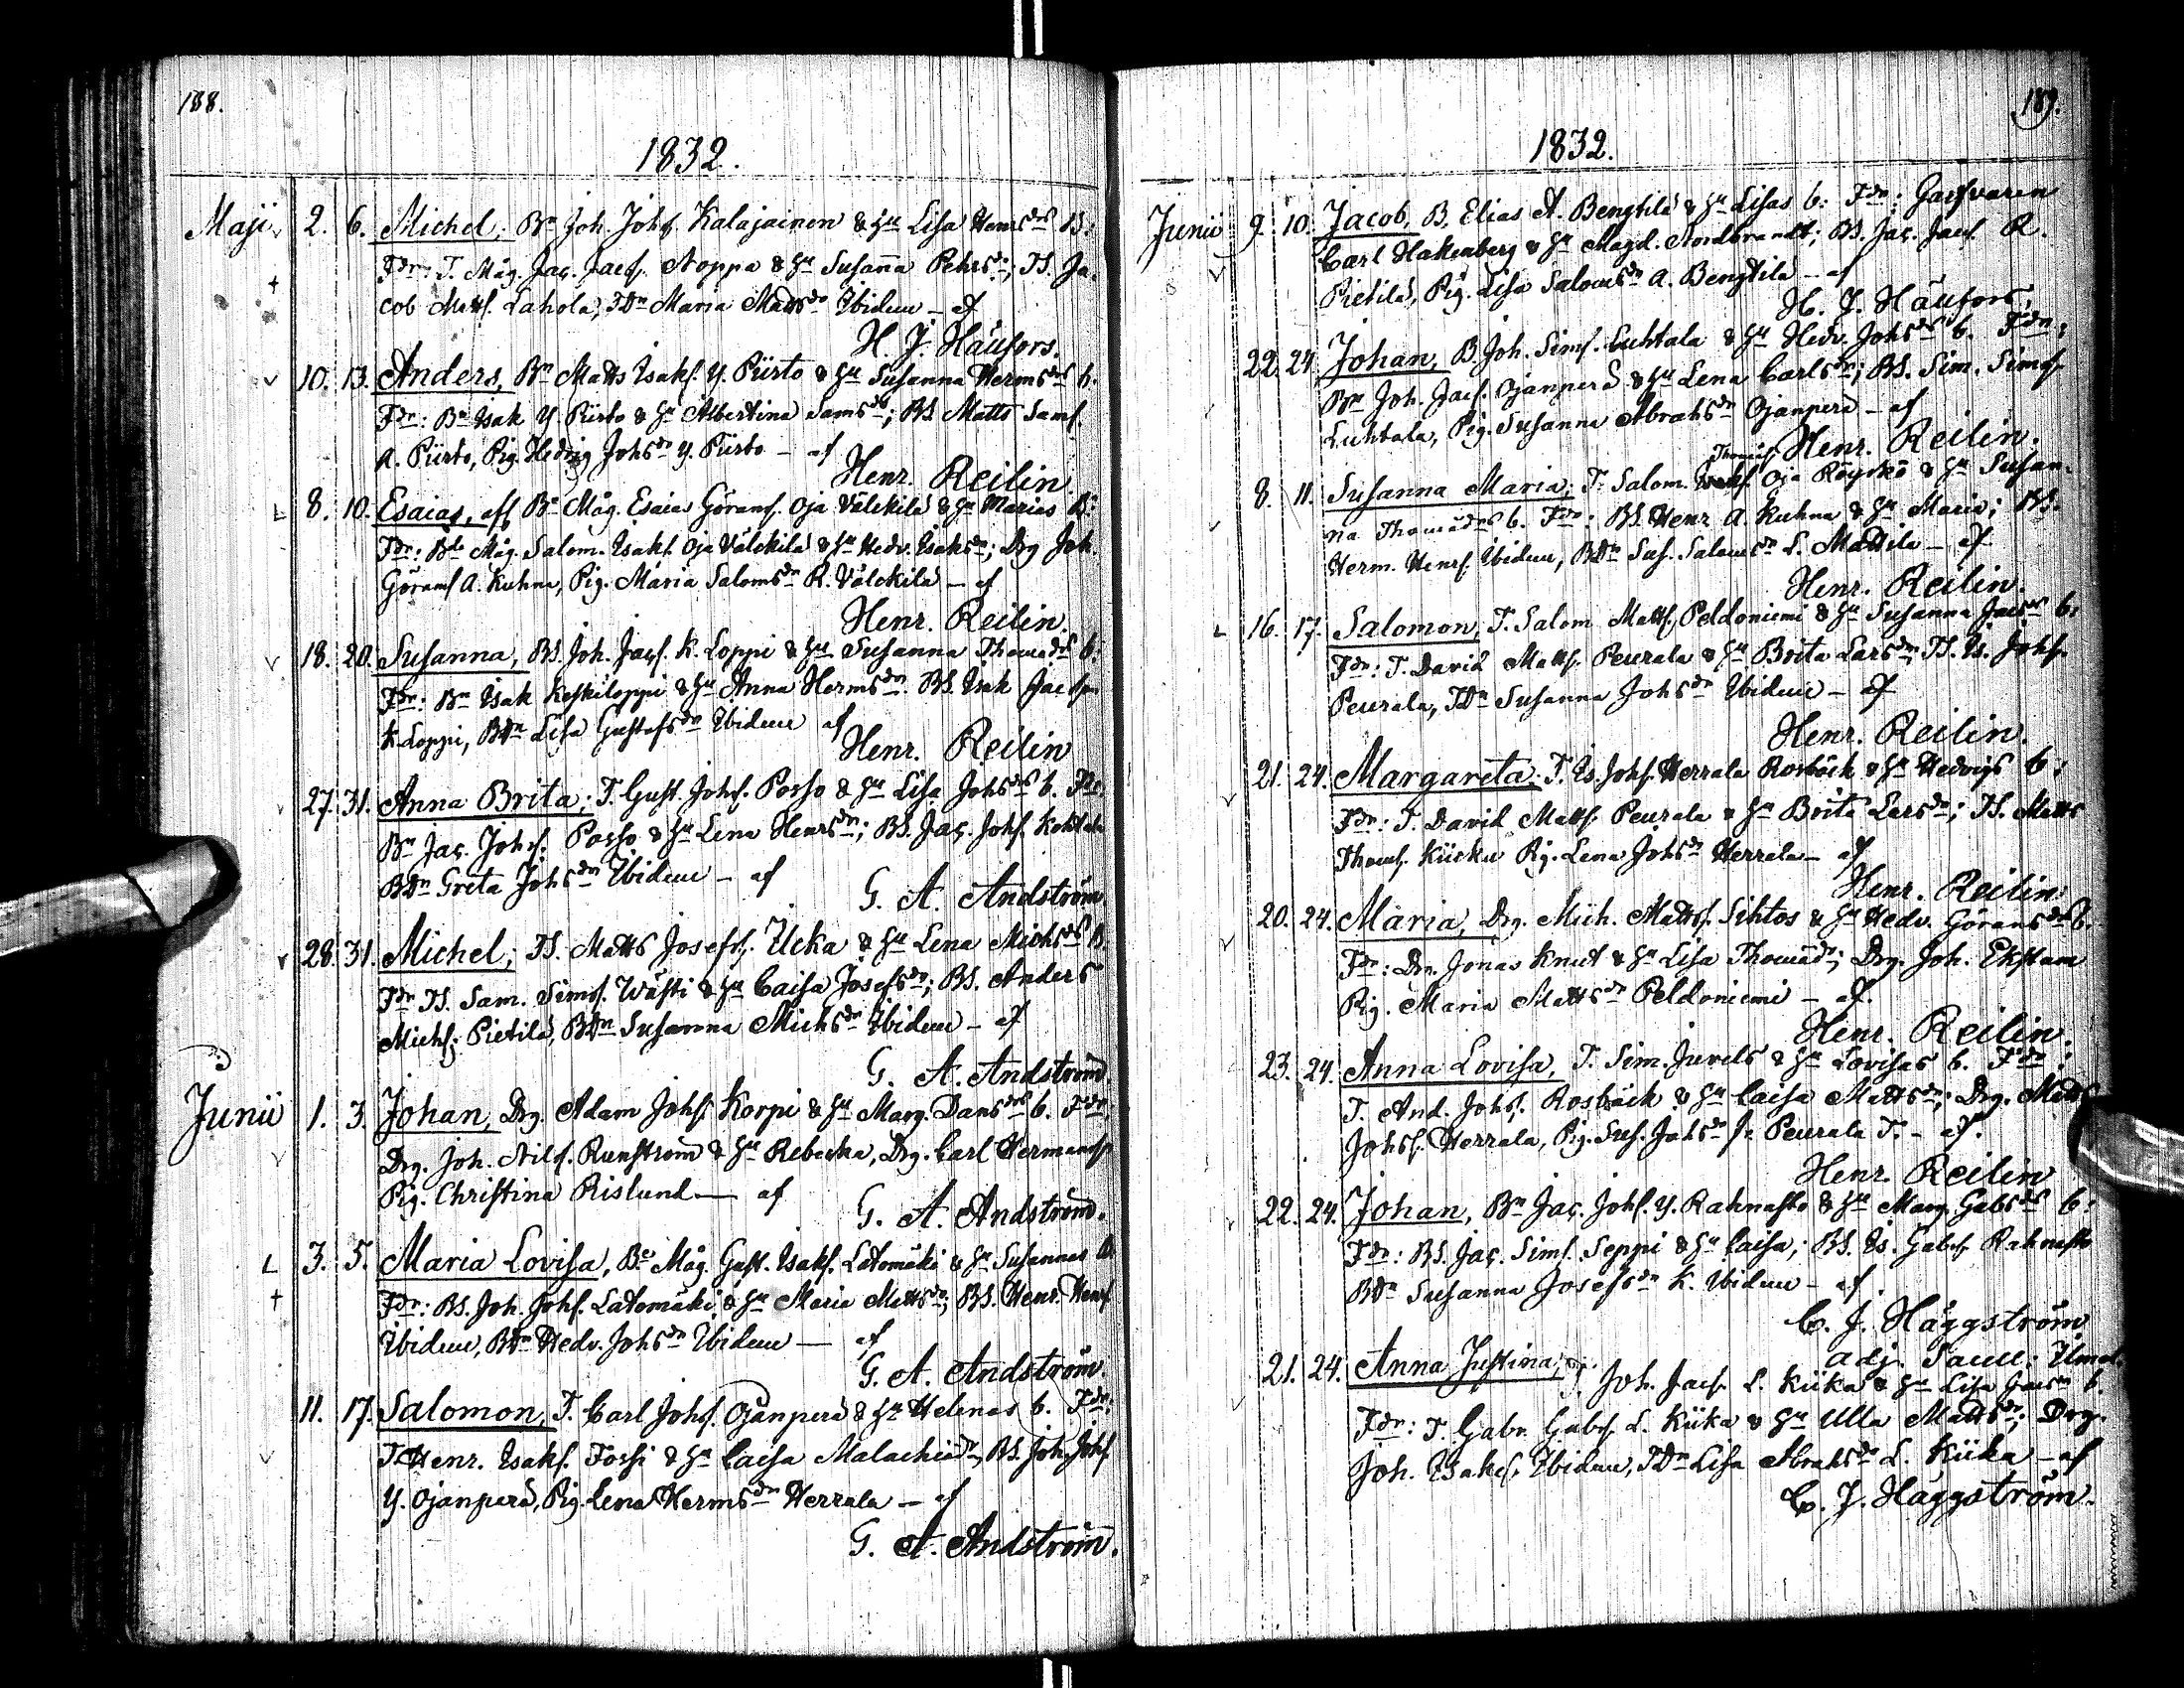 188.
1832.
Maji 2. 6. Michel; Bn Joh. Johs. Kalajainen & Hu Lisa Henrsdrs B:
Fdr: T. Måg. Jac. Jacs. Noppa & Hu Susanna Pehrsdr; TS. Ja-
cob Matts. Lahola, TDr Maria Mattsdr Ibidem – af
H. J. Häufors.
10. 13. Anders, Bn Matts Isaks. Y. Piirto & Hu Susanna Hermsdrs b.
Fdr: Bn Isak Y. Piirto & Hu Albertina Samsdr; BS. Matts Sams.
A. Piirto, Pig. Hedvig Johsdr Y. Piirto – af
Henr. Reilin
8. 10. Esaias, afl. Bn Måg. Esaias Görans. Oja Välckilä & Hu Marias B:
Fdr: Bde Måg. Salom. Isaks. Oja Välckilä & Hu Hedv. Isaksdr; Drg Joh.
Görans. A. Kuhna, Pig. Maria Salomsdr R. Välckilä – af
Henr. Reilin.
18. 20. Susanna, BS. Joh. Jacs. K. Loppi & Hu Susanna Thomädrs b:
Fdr: Bn Isak Keskiloppi & Hu Anna Hermsdr. BS. Isak Jacs.
K. Loppi, BDr Lisa Gustafsdr Ibidem af
Henr. Reilin
27. 31. Anna Brita; T. Gust. Johs. Porso & Hu Lisa Johsdrs b. Fdr:
Bn Jac. Johs. Posso & Hu Lena Henrsdr; BS. Jac. Johs. Kohtala
BDr Greta Johsdr Ibidem – af
G. A. Andström.
28. 31. Michel; TS. Matts Josefs. Ucka & Hu Lena Michsdrs B.
Fdr TS. Sam. Sims. Wästi & Hu Caisa Josefsdr; BS. Anders
Michs. Pietilä, BDr Susanna Michsdr Ibidem – af
G. A. Andström.
Junii 1. 3. Johan, Drg. Adam Johs. Korpi & Hu Marg. Dansdrs b. Fdr
Drg. Joh. Nils. Runström & Hu Rebecka, Drg. Carl Hermans.
Pig. Christina Rislund — af
G. A. Andström.
3. 5. Maria Lovisa, Be Måg. Gust. Isaks. Latomäki & Hu Susannas B.
Fdr: BS. Joh. Johs. Latomäki & Hu Maria Mattsdr; BS. Henr. Henrs.
Ibidem, BDr Hedv. Johsdr Ibidem — af
G. A. Andström.
11. 17. Salomon, T. Carl Johs. Ojanperä & Hu Helenas b. Fdr:
T. Henr. Isaks. Fossi & Hu Caisa Malachiädr, BS. Joh. Johs.
Y. Ojanperä, Pig. Lena Hermsdr Herrala – af
G. A. Andström.
189.
1832.
Junii 9 10. Jacob, B. Elias A. Bengtilä & Hu Lisas b: Fdr: Garfvaren
Carl Hakenberg & Hu Magd. Nordbrandt; BS. Jac. Jacs. R.
Pietilä, Pig. Lisa Salomsdr A. Bengtilä – af
H. J. Häufors.
22. 24. Johan, B. Joh. Sims. Luhtala & Hu Hedv. Johsdrs b. Fdr:
Bn Joh. Jacs. Ojanperä & Hu Lena Carlsdr; BS. Sim. Sims.
Luhtala, Pig. Susanna Abrahsdr Ojanperä – af
Henr. Reilin.
Thomäs.
8. 11. Susanna Maria; T. Salom. Isaks. Oja Röyskö & Hu Susan-
na Thomädrs b. Fdr: BS. Henr. A. Kuhna & Hu Maria; BS.
Herm. Henrs. Ibidem, BDr Sus. Salomsdr L. Mattila – af
Henr. Reilin.
16. 17. Salomon, T. Salom. Matts. Peldoniemi & Hu Susanna Jacsdrs b:
Fdr: T. David Matts. Peurala & Hu Brita Larsdr; TS. Is. Johs.
Peurala, TDr Susanna Johsdr Ibidem – af
Henr. Reilin.
21. 24. Margareta; T. Is. Johs. Herrala Rosbäck & Hu Hedvigs b:
Fdr: T. David Matts. Peurala & Hu Brita Larsdr; TS. Matts
Thoms. Kücku Pig. Lena Johsdr Herrala – af
Henr. Reilin.
20. 24. Maria, Drg. Mich. Matts. Sihtos & Hu Hedv. Göransdrs b.
Fdr: Drg. Jonas Knut & Hu Lisa Thomädr; Drg. Joh. Ekstam
Pig. Maria Mattsdr Peldoniemi – af.
Henr. Reilin.
23. 24. Anna Lovisa, T. Sim. Juvels & Hu Lovisas b. Fdr:
T. And. Johs. Rosbäck & Hu Caisa Mattsdr; Drg. Matts
Johs. Herrala, Pig. Sus. Johsdr fr. Peurala T. – af.
Henr. Reilin
22. 24. Johan, Bn Jac. Johs. Y. Rahnasto & Hu Marg. Gabsdrs b:
Fdr: BS. Jac. Sims. Seppi & Hu Caisa; BS. Is. Gabs. Rahnasto
BDr Susanna Josefsdr K. Ibidem – af.
C. J. Häggström
Adj. Sacell:
21. 24. Anna Justina, T. Joh. Jacs. L. Kiika & Hu Lisa Jacsdrs b.
Fdr: T. Gabr. Gabs. L. Kiika & Hu Ulla Mattsdr; Drg.
Joh. Isaks. Ibidem, TDr Lisa Abrahsdr L. Kiika – af
C. J. Häggström.